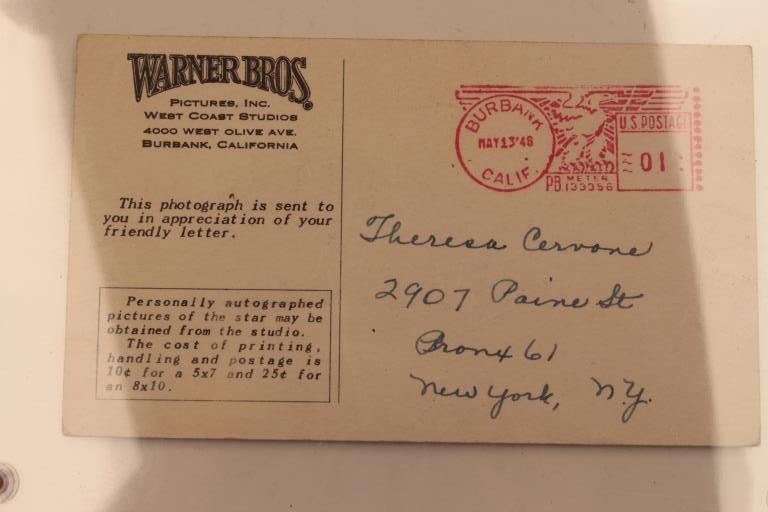 WARNER BROS.
PICTURES, INC.
WEST COAST STUDIOS
4000 WEST OLIVE AVE.
BURBANK, CALIFORNIA
This photograph is sent to
you in appreciation of your
friendly letter.
Personally autographed
pictures of the star may be
obtained from the studio.
The cost of printing,
handling and postage is
10¢ for a 5x7 and 25¢ for
an 8x10.
BURBANK
MAY 13'48
CALIF.
U.S. POSTAGE
01
PB METER
133356
Theresa Cervone
2907 Paine St
Bronx 61
New York, N.Y.